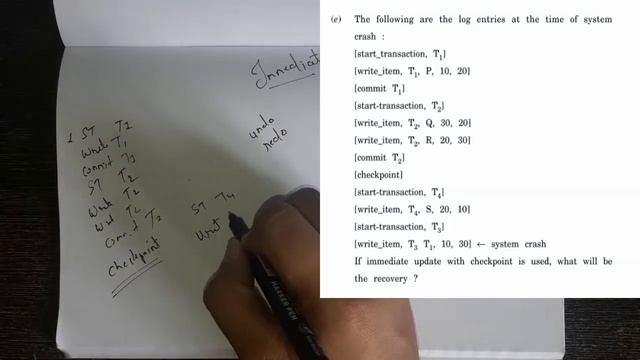 Immediat
1 ST T1
Write T1
Commit T1
ST T2
Write T2
Writ T2
Commit T2
Checkpoint
undo
redo
ST T4
Writ
(e) The following are the log entries at the time of system
crash :
[start_transaction, T1]
[write_item, T1, P, 10, 20]
[commit T1]
[start-transaction, T2]
[write_item, T2, Q, 30, 20]
[write_item, T2, R, 20, 30]
[commit T2]
[checkpoint]
[start-transaction, T4]
[write_item, T4, S, 20, 10]
[start-transaction, T3]
[write_item, T3 T1, 10, 30] ← system crash
If immediate update with checkpoint is used, what will be
the recovery ?